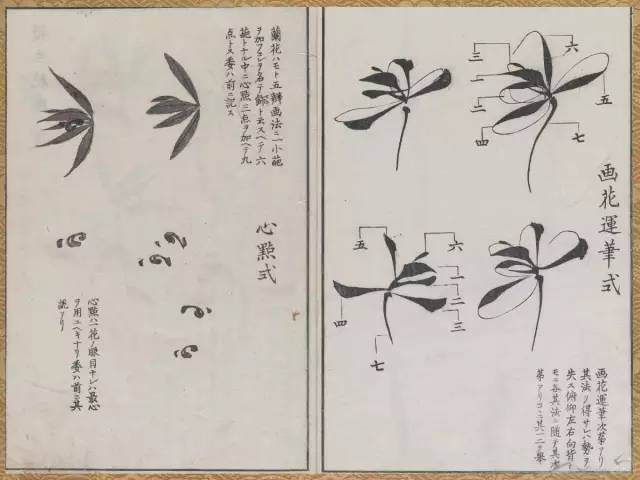 画花運筆式
六
三
一
二
五
四
七
五
六
一
二
三
四
七
画花運筆次第アリ
其法ヲ得サレハ勢ヲ
失ス俯仰左右向背
モ各其法ニ随テ其次
第アリコヽニ其一二ヲ擧
蘭花ハモト五瓣画法ニ一小葩
ヲ加フコレヲ名テ飾ト云スヘテ六
葩トナル中ニ心點三点ヲ加ヘテ九
点トス委ハ前ニ記ス
心點式
心點ハ一花ノ眼目ナレハ最心
ヲ用ユヘキナリ委ハ前ニ其
説アリ